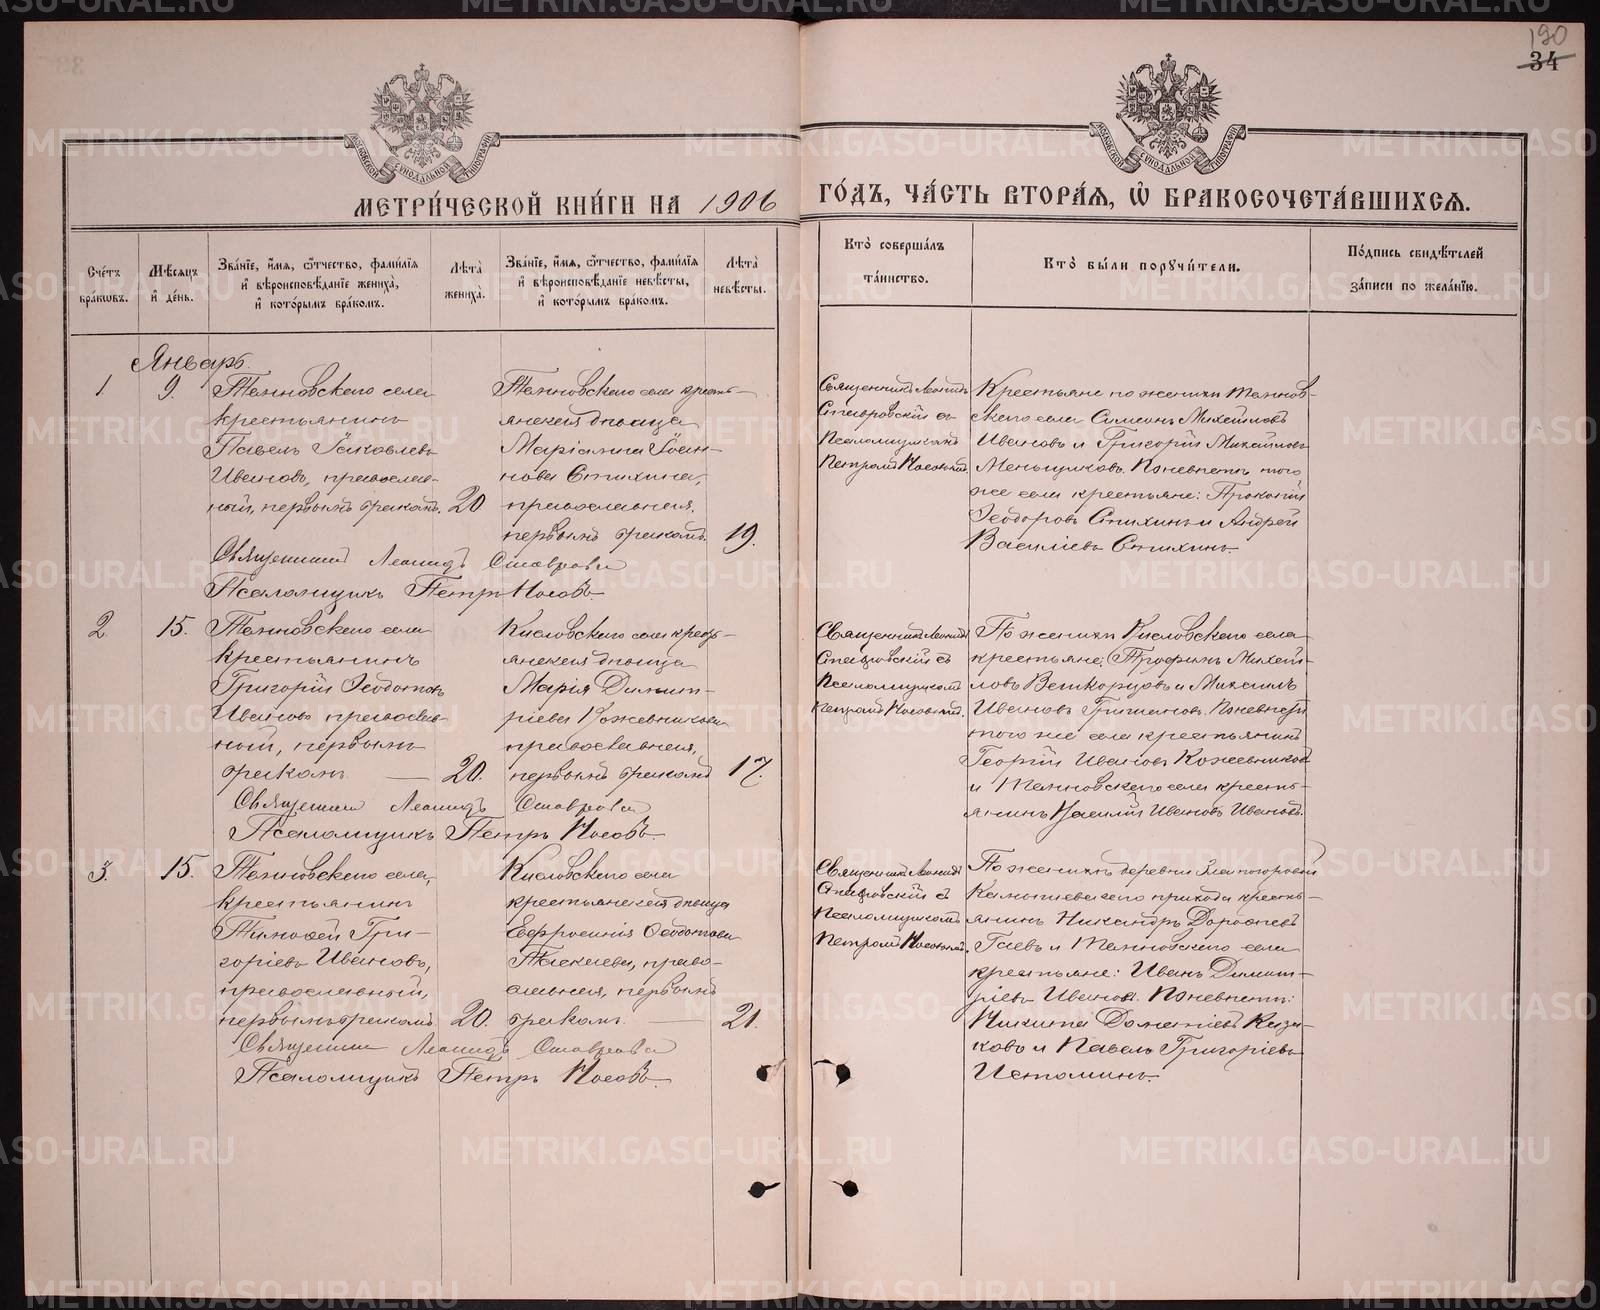 190
34
МОСКОВСКОЙ СѴНОДАЛЬНОЙ ТИПОГРАФІИ
МОСКОВСКОЙ СѴНОДАЛЬНОЙ ТИПОГРАФІИ
МЕТРИ́ЧЕСКОЙ КНИ́ГИ НА 1906 ГО́ДЪ, ЧА́СТЬ ВТОРА́Я, Ѽ БРАКОСОЧЕТА́ВШИХСЯ.
Счетъ браковъ.
Мѣсяцъ и день.
Званіе, имя, отчество, фамилія и вѣроисповѣданіе жениха, и которымъ бракомъ.
Лѣта жениха.
Званіе, имя, отчество, фамилія и вѣроисповѣданіе невѣсты, и которымъ бракомъ.
Лѣта невѣсты.
Кто совершалъ таинство.
Кто были поручители.
Подпись свидѣтелей записи по желанію.
Январь.
1
9.
крестьянинъ
Павелъ Іаковлевъ
Ивановъ, православ-
ный, первымъ бракомъ.
20
янская дѣвица
Маріамна Іоан-
нова Стихина,
православная,
первымъ бракомъ.
19.
Священникъ Леонидъ
Ставровскій съ
Псаломщикомъ
Петромъ Носовымъ.
Крестьяне по женихѣ
скаго села Симеонъ Михайловъ
Ивановъ и Григорій Михайловъ
Меньшиковъ. По невѣстѣ того
же села крестьяне: Прокопій
Ѳеодоровъ Стихинъ и Андрей
Василіевъ Стихинъ.
Священникъ Леонидъ
Псаломщикъ Петръ Носовъ.
2
15.
крестьянинъ
Григорій Ѳеодотовъ
Ивановъ православ-
ный, первымъ
бракомъ —
20.
Кисловскаго села крестъ-
янская дѣвица
Марія Димит-
ріева Кожевникова
православная,
первымъ бракомъ
17.
Священникъ Леонидъ
Ставровскій съ
Псаломщикомъ
Петромъ Носовымъ.
По женихѣ Кисловскаго села
крестьяне: Трофимъ Михай-
ловъ и Михаилъ
Ивановъ По невѣстѣ
того же села крестьянинъ
Георгій Ивановъ Кожевниковъ
и села кресть-
янинъ Василій Ивановъ Ивановъ.
Священникъ Леонидъ
Псаломщикъ Петръ Носовъ.
3.
15.
крестьянинъ
Тимоѳей Гри-
горіевъ Ивановъ,
православный,
первымъ бракомъ
20.
Кисловскаго села
крестьянская дѣвица
Евфросинія Ѳеодотова
право-
славная, первымъ
бракомъ —
21.
Священникъ Леонидъ
Ставровскій съ
Псаломщикомъ
Петромъ Носовымъ.
По женихѣ деревни
прихода кресть-
янинъ Никандръ Дороѳеевъ
Гаевъ и села
крестьяне: Иванъ Димит-
ріевъ Ивановъ. По невѣстѣ:
Никита Каза-
ковъ и Павелъ Григоріевъ
Истоминъ.
Священникъ Леонидъ
Псаломщикъ Петръ Носовъ.
METRIKI.GASO-URAL.RU